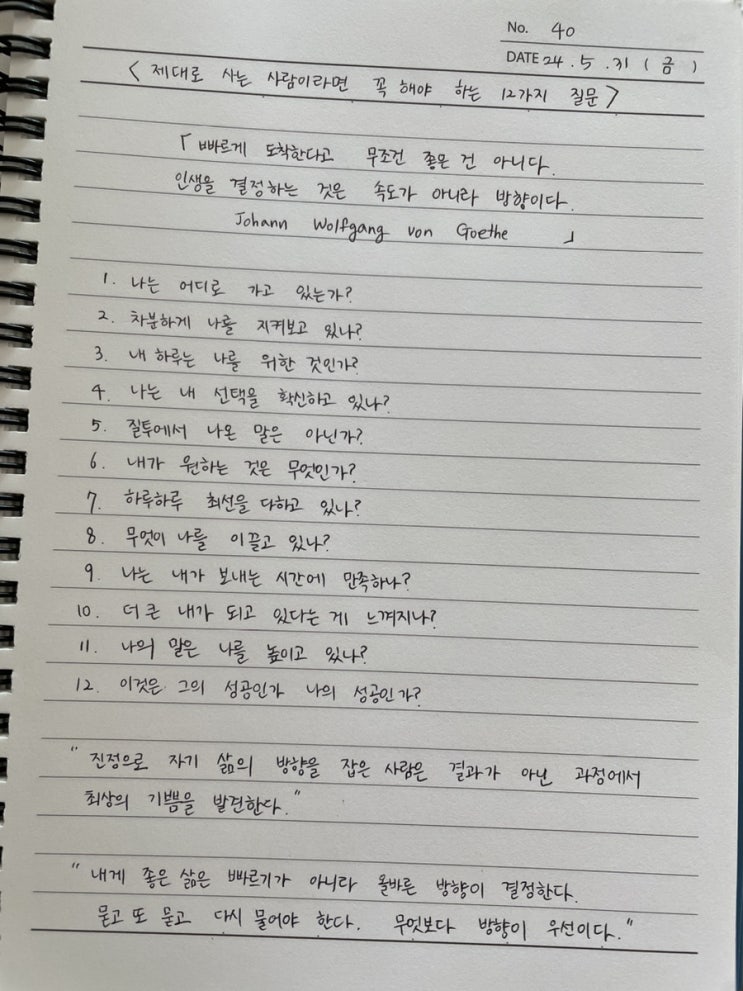 No. 40
DATE 24. 5. 31 ( 금 )
< 제대로 사는 사람이라면 꼭 해야 하는 12가지 질문 >
「 빠르게 도착한다고 무조건 좋은 건 아니다.
인생을 결정하는 것은 속도가 아니라 방향이다.
Johann Wolfgang von Goethe 」
1. 나는 어디로 가고 있는가?
2. 차분하게 나를 지켜보고 있나?
3. 내 하루는 나를 위한 것인가?
4. 나는 내 선택을 확신하고 있나?
5. 질투에서 나온 말은 아닌가?
6. 내가 원하는 것은 무엇인가?
7. 하루하루 최선을 다하고 있나?
8. 무엇이 나를 이끌고 있나?
9. 나는 내가 보내는 시간에 만족하나?
10. 더 큰 내가 되고 있다는 게 느껴지나?
11. 나의 말은 나를 높이고 있나?
12. 이것은 그의 성공인가 나의 성공인가?
" 진정으로 자기 삶의 방향을 잡은 사람은 결과가 아닌 과정에서
최상의 기쁨을 발견한다. "
" 내게 좋은 삶은 빠르기가 아니라 올바른 방향이 결정한다.
묻고 또 묻고 다시 물어야 한다. 무엇보다 방향이 우선이다. "